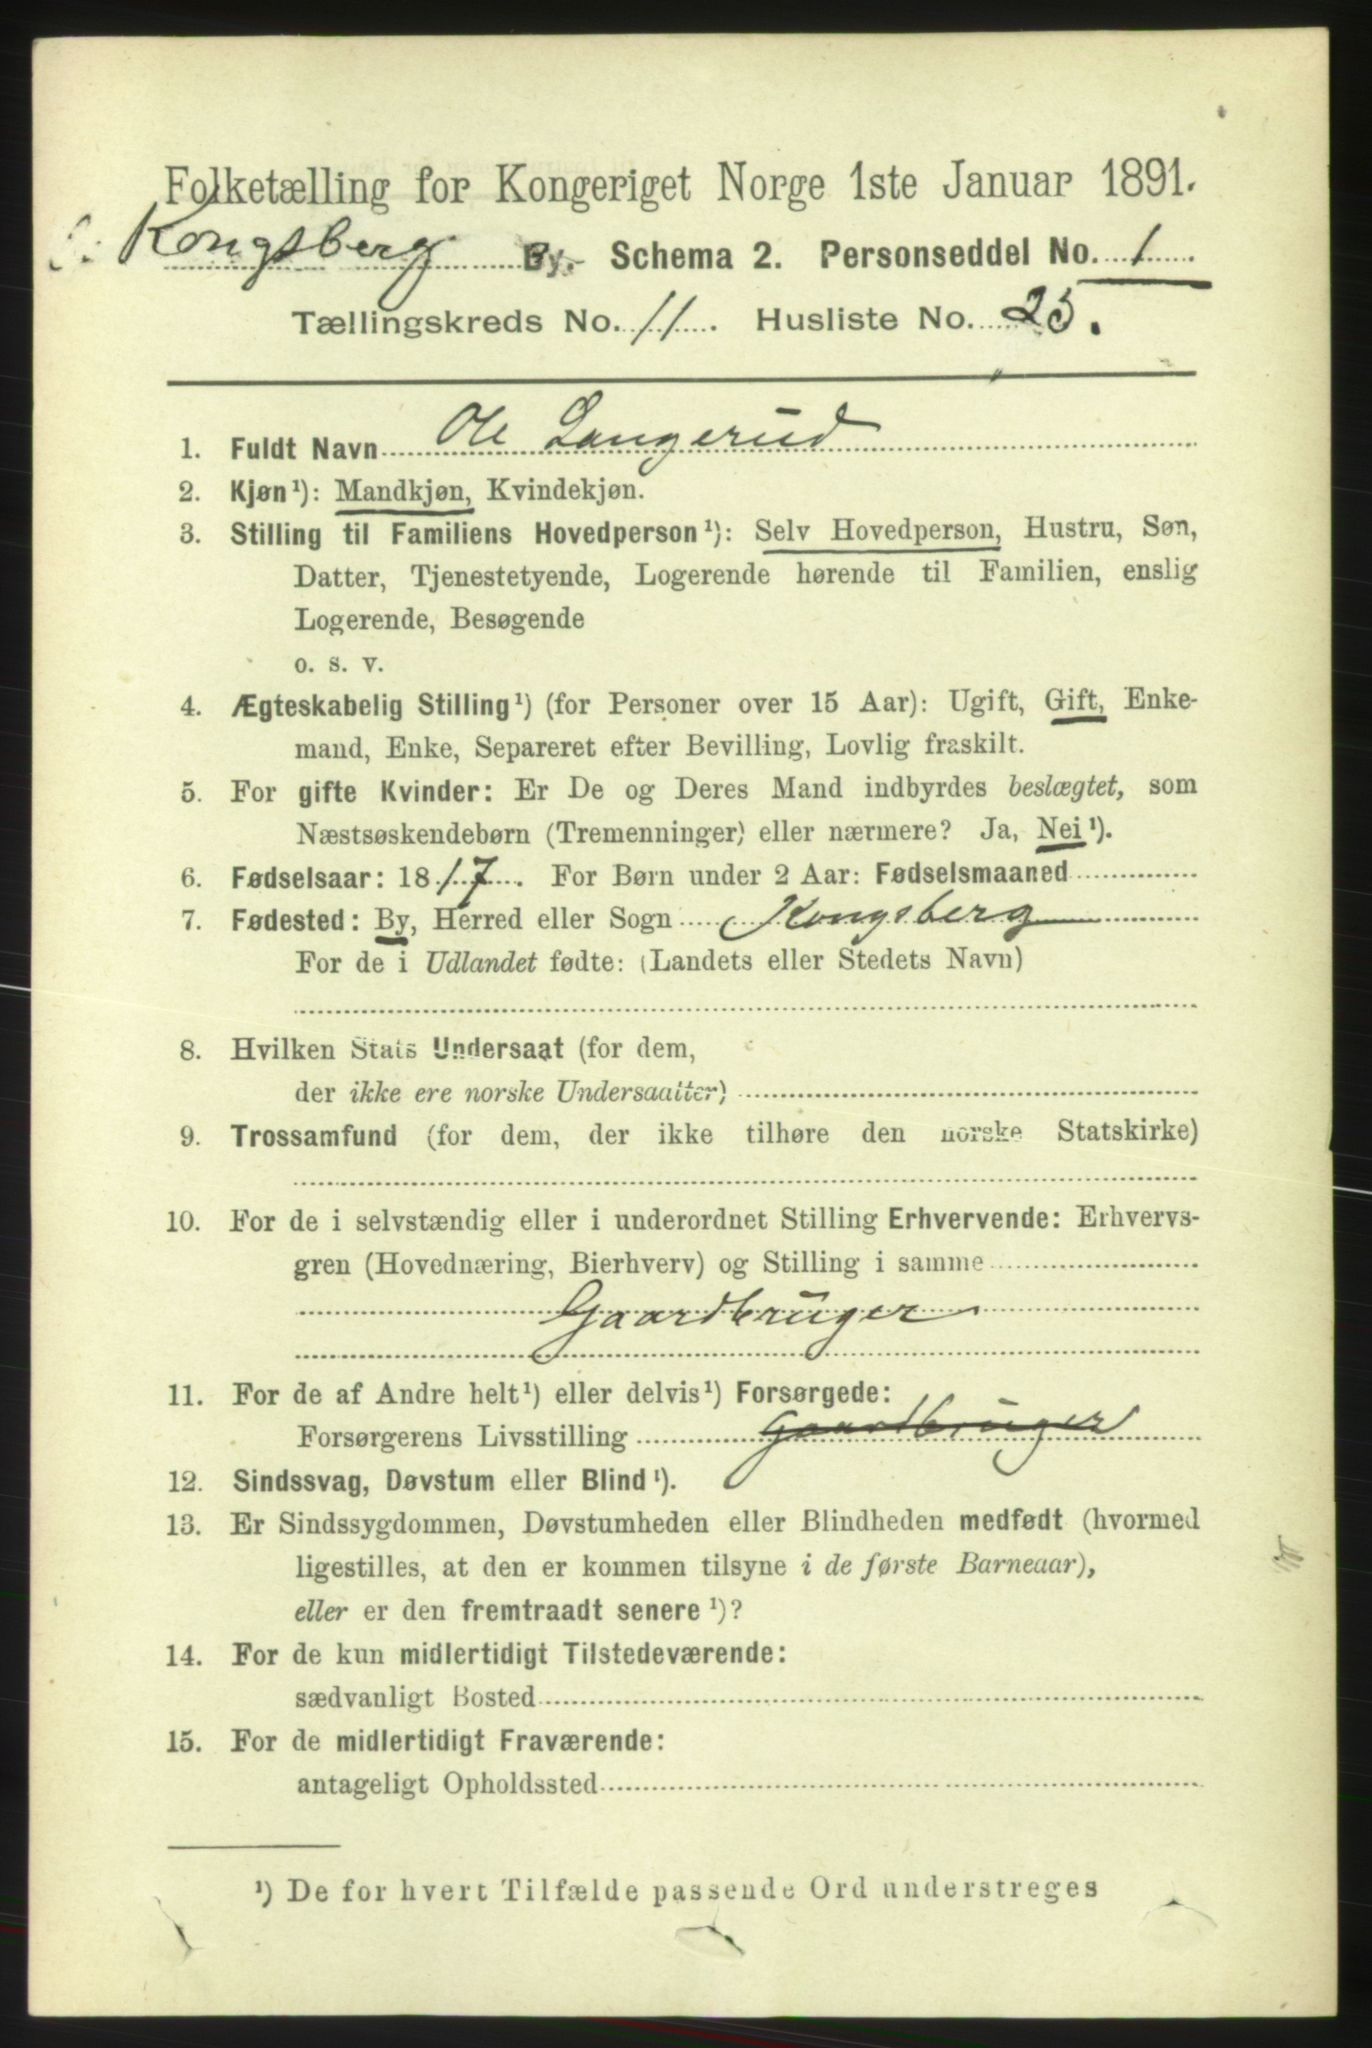 Folketælling for Kongeriget Norge 1ste Januar 1891.
Kongsberg By. Schema 2. Personseddel No. 1
Tællingskreds No. 11. Husliste No. 25.
1. Fuldt Navn Ole Langerud
2. Kjøn¹): Mandkjøn, Kvindekjøn.
3. Stilling til Familiens Hovedperson¹): Selv Hovedperson, Hustru, Søn,
Datter, Tjenestetyende, Logerende hørende til Familien, enslig
Logerende, Besøgende
o. s. v.
4. Ægteskabelig Stilling¹) (for Personer over 15 Aar): Ugift, Gift, Enke-
mand, Enke, Separeret efter Bevilling, Lovlig fraskilt.
5. For gifte Kvinder: Er De og Deres Mand indbyrdes beslægtet, som
Næstsøskendebørn (Tremenninger) eller nærmere? Ja, Nei¹).
6. Fødselsaar: 1817. For Børn under 2 Aar: Fødselsmaaned
7. Fødested: By, Herred eller Sogn Kongsberg
For de i Udlandet fødte: (Landets eller Stedets Navn)
8. Hvilken Stats Undersaat (for dem,
der ikke ere norske Undersaatter)
9. Trossamfund (for dem, der ikke tilhøre den norske Statskirke)
10. For de i selvstændig eller i underordnet Stilling Erhvervende: Erhvervs-
gren (Hovednæring, Bierhverv) og Stilling i samme
Gaardbruger
11. For de af Andre helt¹) eller delvis¹) Forsørgede:
Forsørgerens Livsstilling Gaardbruger
12. Sindssvag, Døvstum eller Blind¹).
13. Er Sindssygdommen, Døvstumheden eller Blindheden medfødt (hvormed
ligestilles, at den er kommen tilsyne i de første Barneaar),
eller er den fremtraadt senere¹)?
14. For de kun midlertidigt Tilstedeværende:
sædvanligt Bosted
15. For de midlertidigt Fraværende:
antageligt Opholdssted
¹) De for hvert Tilfælde passende Ord understreges